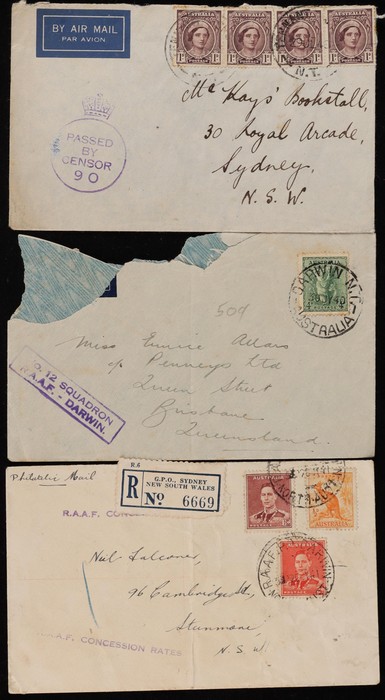 BY AIR MAIL
PAR AVION
AUSTRALIA AUSTRALIA AUSTRALIA AUSTRALIA
1D 1D 1D 1D
N.T.
PASSED
BY
CENSOR
90
Mc Kays' Bookstall,
30 Royal Arcade,
Sydney,
N. S. W.
AUSTRALIA
DARWIN N.T.
AUSTRALIA
Miss Eunice
c/o Penneys Ltd
Queen Street
Brisbane
Queensland.
No. 12 SQUADRON
R.A.A.F. - DARWIN.
Philatelic Mail
R.6
R
G.P.O., SYDNEY
NEW SOUTH WALES
No 6669
AUSTRALIA AUSTRALIA
AUSTRALIA
R.A.A.F. DARWIN
R.A.A.F. CONC
Neil Falconer,
96 Cambridge St,
Stanmore,
N. S. W.
A.F. CONCESSION RATES